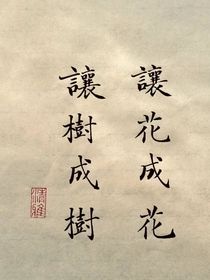 讓花成花
讓樹成樹